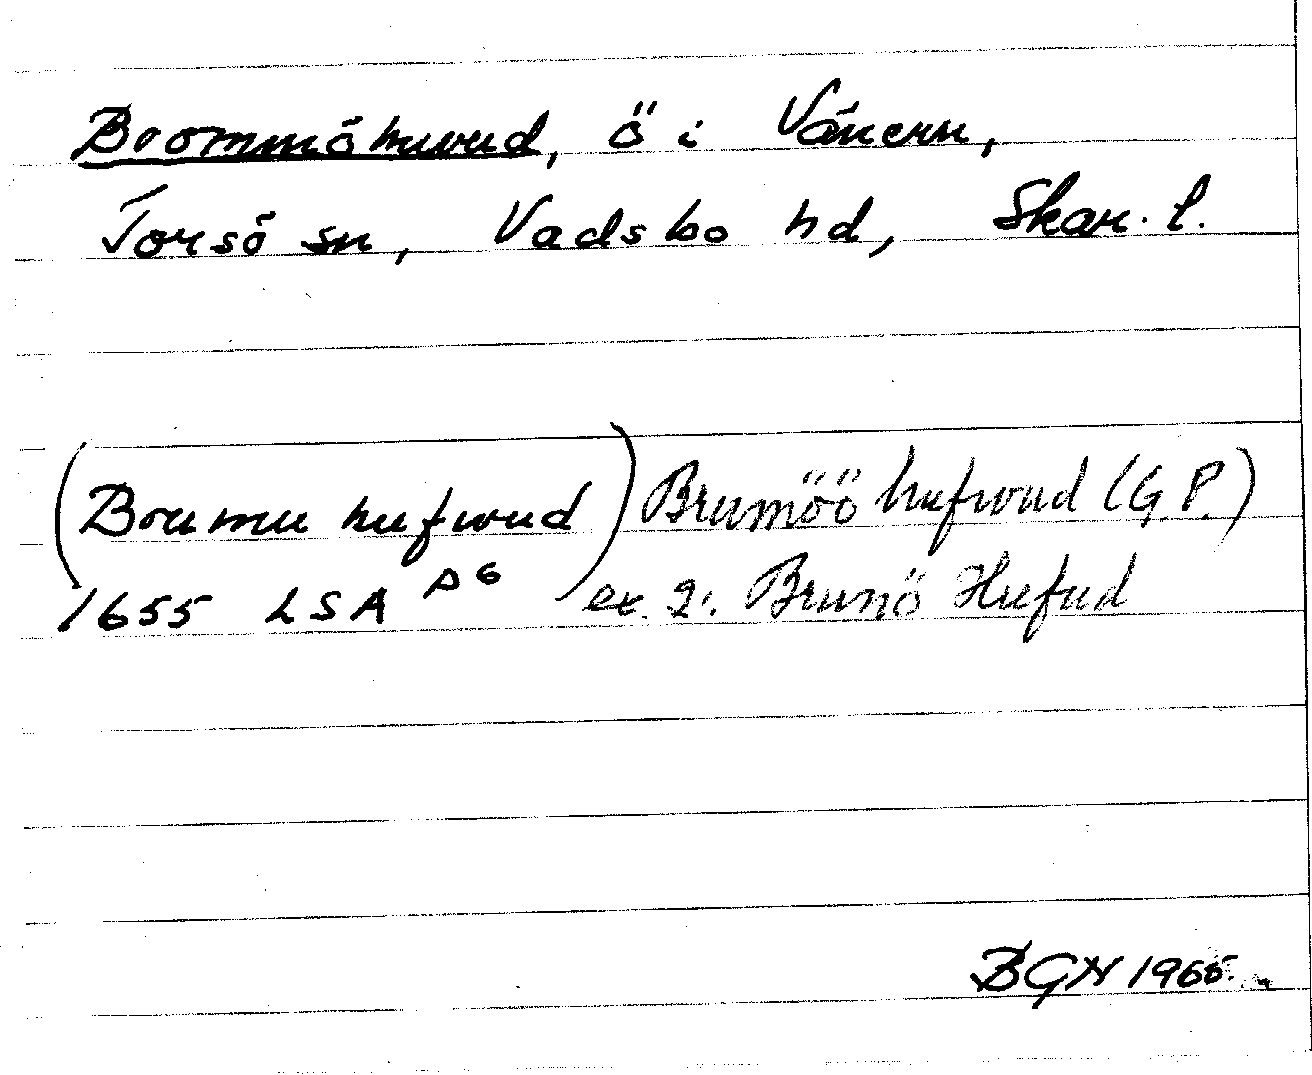 Brommöhuvud, ö i Vänern,
Torsö sn, Vadsbo hd, Skar. l.
(Brumu hufwud) Brumöö hufwud (G.P.)
1655 LSA P6 ex. 2: Brunö Hufud
BGN 1965.